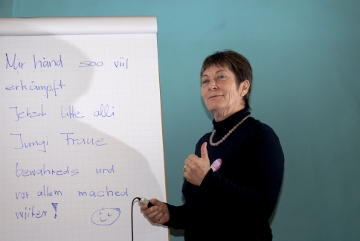 Mir händ sooo viil
erkämpft
Jetzt bitte alli
Jungi Fraue
bewahreds und
vor allem mached
wiiter!